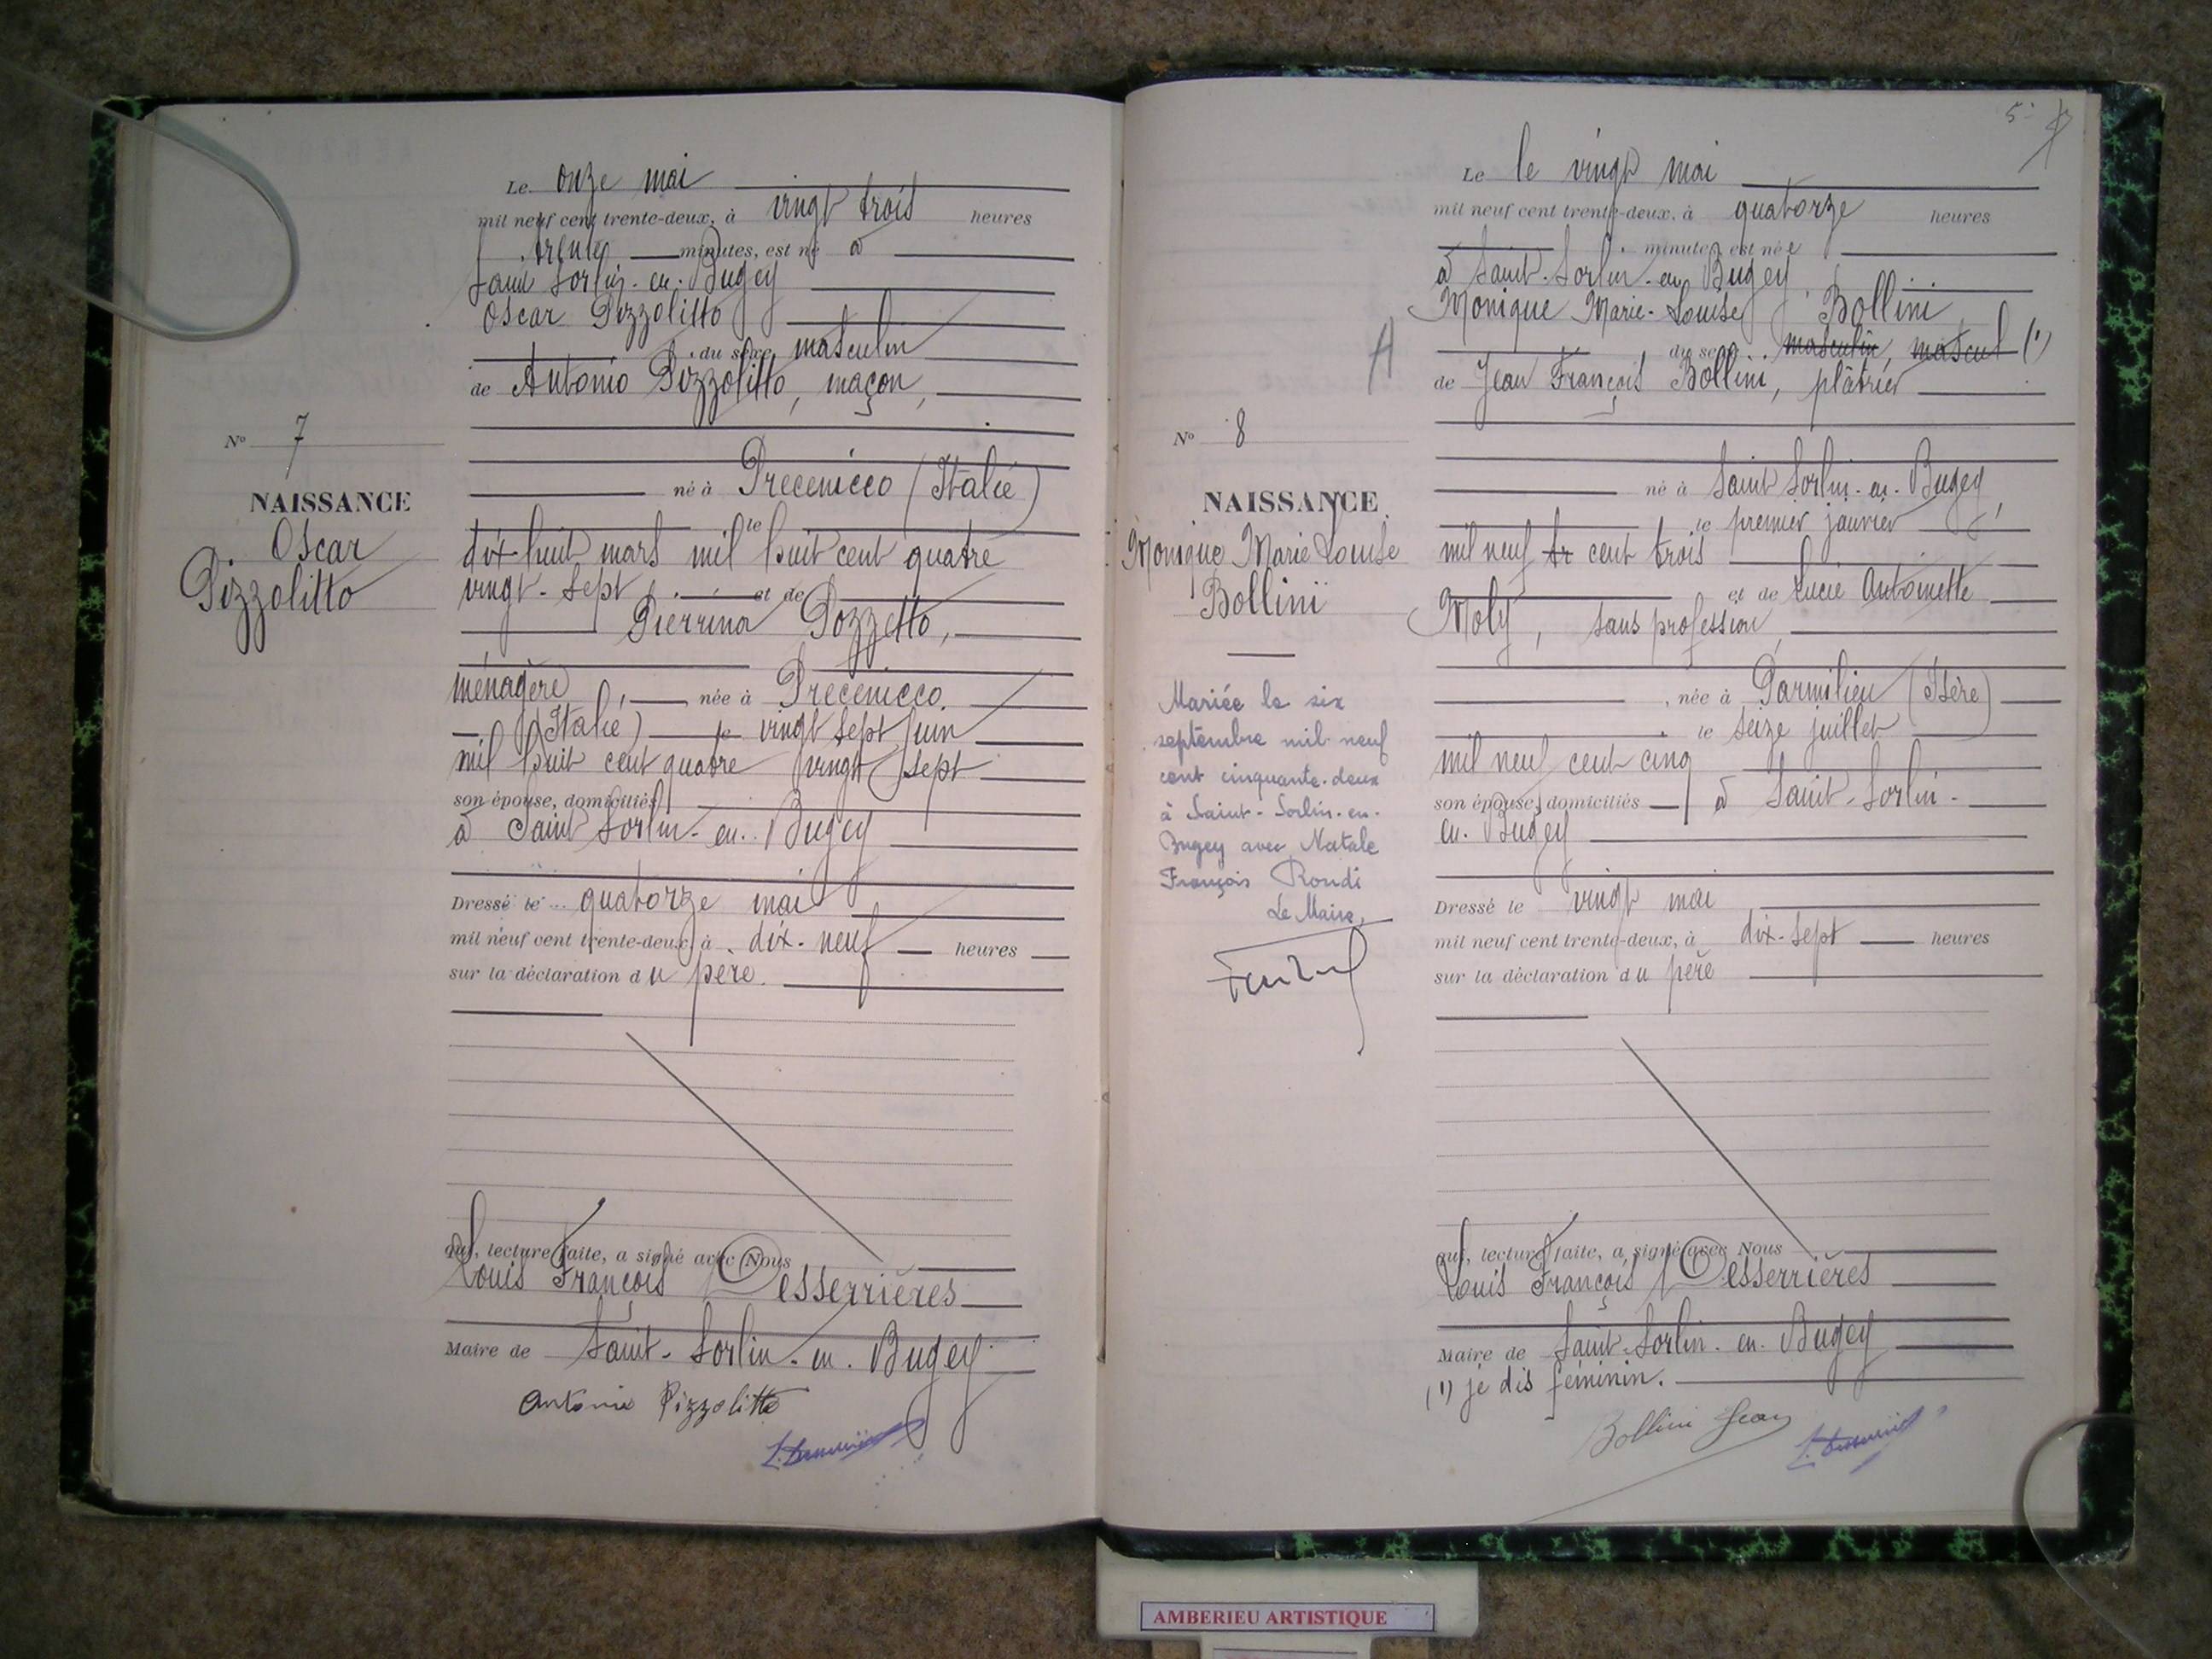 Le onze mai
mil neuf cent trente-deux, à vingt trois heures
trente minutes, est né à
Saint Sorlin-en-Bugey
Oscar Pizzolitto
du sexe masculin
de Antonio Pizzolitto, maçon,
né à Precenicco (Italie)
le
dix-huit mars mil huit cent quatre
vingt-sept et de
Pierrina Pozzetto,
ménagère, née à Precenicco
(Italie) le vingt sept juin
mil huit cent quatre vingt sept
son épouse, domiciliés
à Saint Sorlin-en-Bugey
Dressé le quatorze mai
mil neuf cent trente-deux, à dix-neuf heures
sur la déclaration du père.
qui, lecture faite, a signé avec Nous
Louis François Desserrières
Maire de Saint-Sorlin-en-Bugey
Antonio Pizzolitto
No 7
NAISSANCE
Oscar
Pizzolitto
5
Le le vingt mai
mil neuf cent trente-deux, à quatorze heures
minutes, est née
à Saint-Sorlin-en-Bugey
Monique Marie-Louise Bollini
du sexe masculin, mascul (1)
de Jean François Bollini, plâtrier
né à Saint Sorlin-en-Bugey,
le premier janvier
mil neuf tr cent trois
et de Lucie Antoinette
Moly, sans profession,
, née à Parmilieu (Isère)
le seize juillet
mil neuf cent cinq
son épouse, domiciliés à Saint-Sorlin-
en-Bugey
Dressé le vingt mai
mil neuf cent trente-deux, à dix-sept heures
sur la déclaration du père
qui, lecture faite, a signé avec Nous
Louis François Desserrières
Maire de Saint-Sorlin-en-Bugey
(1) je dis féminin.
Bollini Jean
A
No 8
NAISSANCE
Monique Marie Louise
Bollini
Mariée le six
septembre mil neuf
cent cinquante-deux
à Saint-Sorlin-en-
Bugey avec Natale
François Rondi
Le Maire,
AMBERIEU ARTISTIQUE